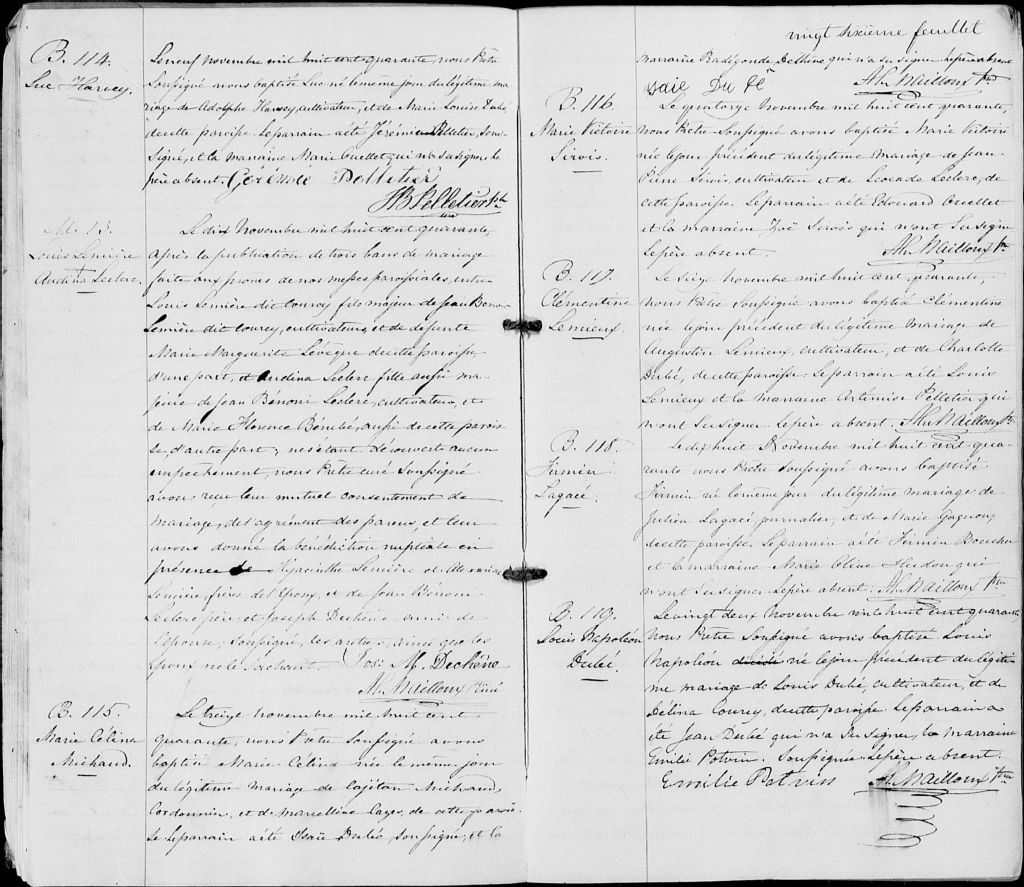 B. 114.
Luc Harvey.
Le neuf novembre mil huit cent quarante, nous Prêtre
Soussigné avons baptisé Luc né le même jour du légitime ma
riage de Adolphe Harvey, cultivateur, et de Marie Louise Dubé,
de cette paroisse. Le parrain a été Jérémie Pelletier, Sous-
Signé, et la marraine Marie Ouellet qui n'a su signer. Le
père absent. Gerémoié Polletier
JB Pelletier Ptr
M. 13.
Louis Lemière
Audina Leclerc.
Le dix Novembre mil huit cent quarante,
après la publication de trois bans de mariage
faite aux prônes de nos messes paroissiales, entre
Louis Lemière dit Courcy fils majeur de Jean Benoi
Lemière dit Courcy, cultivateur, et de défunte
Marie Marguerite Lévêque de cette paroisse,
d'une part, et Audina Leclerc fille aussi ma-
jeure de Jean Bénoni Leclerc, cultivateur, et
de Marie Florence Bérubé, aussi de cette parois
se, d'autre part; ne s'étant découvert aucun
empêchement, nous Prêtre curé Soussigné
avons reçu leur mutuel consentement de
mariage, de l'agrément des parens, et leur
avons donné la bénédiction nuptiale en
présence de Hyacinthe Lemière et
Lemière, frères de l'époux, et de Jean Bénoni
Leclerc père, et Joseph Dechêne ami de
l'épouse, soussigné, les autres, ainsi que les
époux ne le sachant. Jos: M. Dechêne
Al. Mailloux Ptre
B. 115.
Marie Célina
Michaud.
Le treize novembre mil huit cent
quarante, nous Prêtre Soussigné avons
baptisé Marie Célina née le même jour
du légitime mariage de Capitan Michaud,
Cordonnier, et de Marcelline de cette parois
se. Le parrain a été Isaïe Dubé, soussigné, et la
vingt sixième feuillet
marraine Radégonde Deslire qui n'a su signer. Le père absent
saie Du Bé Al. Mailloux Ptre
B. 116.
Marie Victoire
Sirois.
Le quatorze Novembre mil huit cent quarante,
nous Prêtre Soussigné avons baptisé Marie Victoire
née le jour précédent du légitime mariage de Jean-
Pierre Sirois, cultivateur et de Leocade Leclerc, de
cette paroisse. Le parrain a été Edouard Ouellet
et la marraine Zoë Sirois qui n'ont su signer
Le père absent. Al. Mailloux Ptr.
B. 117.
Clémentine
Lemieux.
Le Seize Novembre mil huit cent quarante,
nous Prêtre Soussigné avons baptisé Clémentine
née le jour précédent du légitime mariage de
Augustin Lemieux, cultivateur, et de Charlotte
Dubé, de cette paroisse. Le parrain a été Louis
Lemieux et la marraine Artémise Pelletier qui
n'ont su signer. Le père absent. Al. Mailloux Ptr
B. 118.
Firmin
Lagacé.
Le dix huit Novembre mil huit cent qua-
rante nous Prêtre Soussigné avons baptisé
Firmin né le même jour du légitime mariage de
Julien Lagacé, journalier, et de Marie Gagnon,
de cette paroisse. Le parrain a été Firmin Boucher
et la marraine Marie Olive Hudon qui
n'ont su signer. Le père absent. Al. Mailloux Ptre
B. 119.
Louis Napoléon
Dubé.
Le vingt deux novembre mil huit cent quarante,
Nous Prêtre Soussigné avons baptisé Louis
Napoléon né le jour précédent du légiti-
me mariage de Louis Dubé, cultivateur, et de
Délina Courcy, de cette paroisse. Le parrain a
été Jean Dubé qui n'a su signer, la marraine
Emilie Potvin. Soussignée. Le père absent.
Emilie Potvin Al. Mailloux Ptre